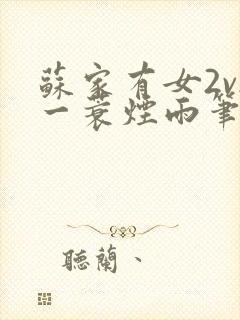 蘇家有女2v
一蓑煙雨筆
聽蘭、